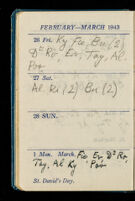 FEBRUARY—MARCH 1943
26 Fri. Ky Fu, Bu (2)
Dª Ro, Er, Tay, Al,
Por
27 Sat.
Al Ru (2) Bu (2)
28 SUN.
1 Mon. March. Fu Er, Dª Ro,
Tay, Al Ky Por
St. David's Day.